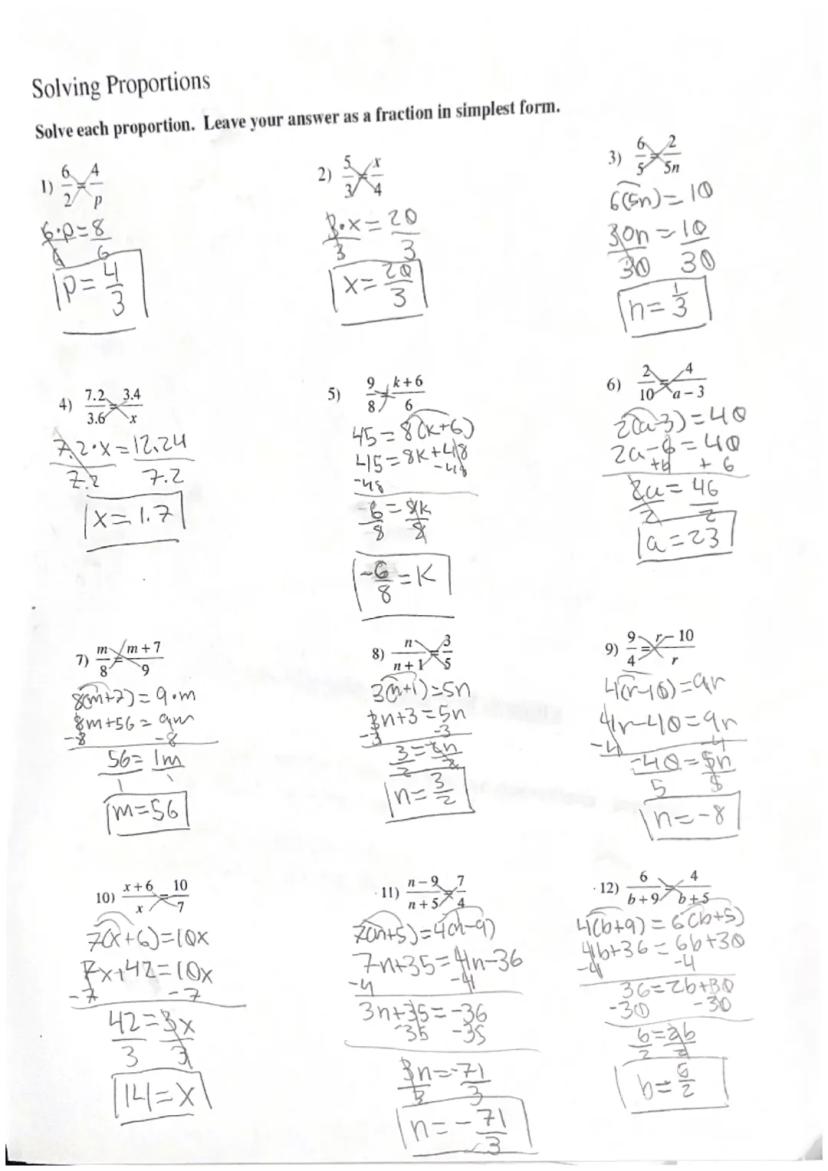 Solving Proportions
Solve each proportion. Leave your answer as a fraction in simplest form.
1) 6/2 = 4/p
6·p = 8
6 6
p = 4/3
2) 5/3 = x/4
3·x = 20
3 3
x = 20/3
3) 6/5 = 2/5n
6(5n) = 10
30n = 10
30 30
n = 1/3
4) 7.2/3.6 = 3.4/x
7.2·x = 12.24
7.2 7.2
x = 1.7
5) 9/8 = k+6/6
45 = 8(k+6)
45 = 8k+48
-48 -48
-6/8 = 8k/8
-6/8 = K
6) 2/10 = 4/a-3
2(a-3) = 40
2a-6 = 40
+6 + 6
2a = 46
2 2
a = 23
7) m/8 = m+7/9
8(m+7) = 9·m
8m+56 = 9m
-8 -8
56 = 1m
1 1
m = 56
8) n/n+1 = 3/5
3(n+1) = 5n
3n+3 = 5n
-3 -3
3 = 2n
2 2
n = 3/2
9) 9/4 = r-10/r
4(r-10) = 9r
4r-40 = 9r
-4 -4
-40 = 5r
5 5
r = -8
10) x+6/x = 10/7
7(x+6) = 10x
7x+42 = 10x
-7 -7
42 = 3x
3 3
14 = x
11) n-9/n+5 = 7/4
7(n+5) = 4(n-9)
7n+35 = 4n-36
-4 -4
3n+35 = -36
-35 -35
3n = -71
3 3
n = -71/3
12) 6/b+9 = 4/b+5
4(b+9) = 6(b+5)
4b+36 = 6b+30
-4 -4
36 = 2b+30
-30 -30
6 = 2b
2 2